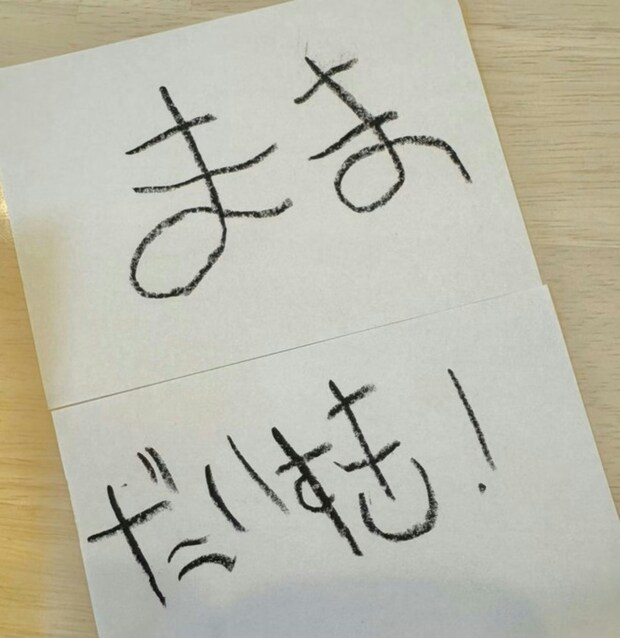 まま
だいすき!